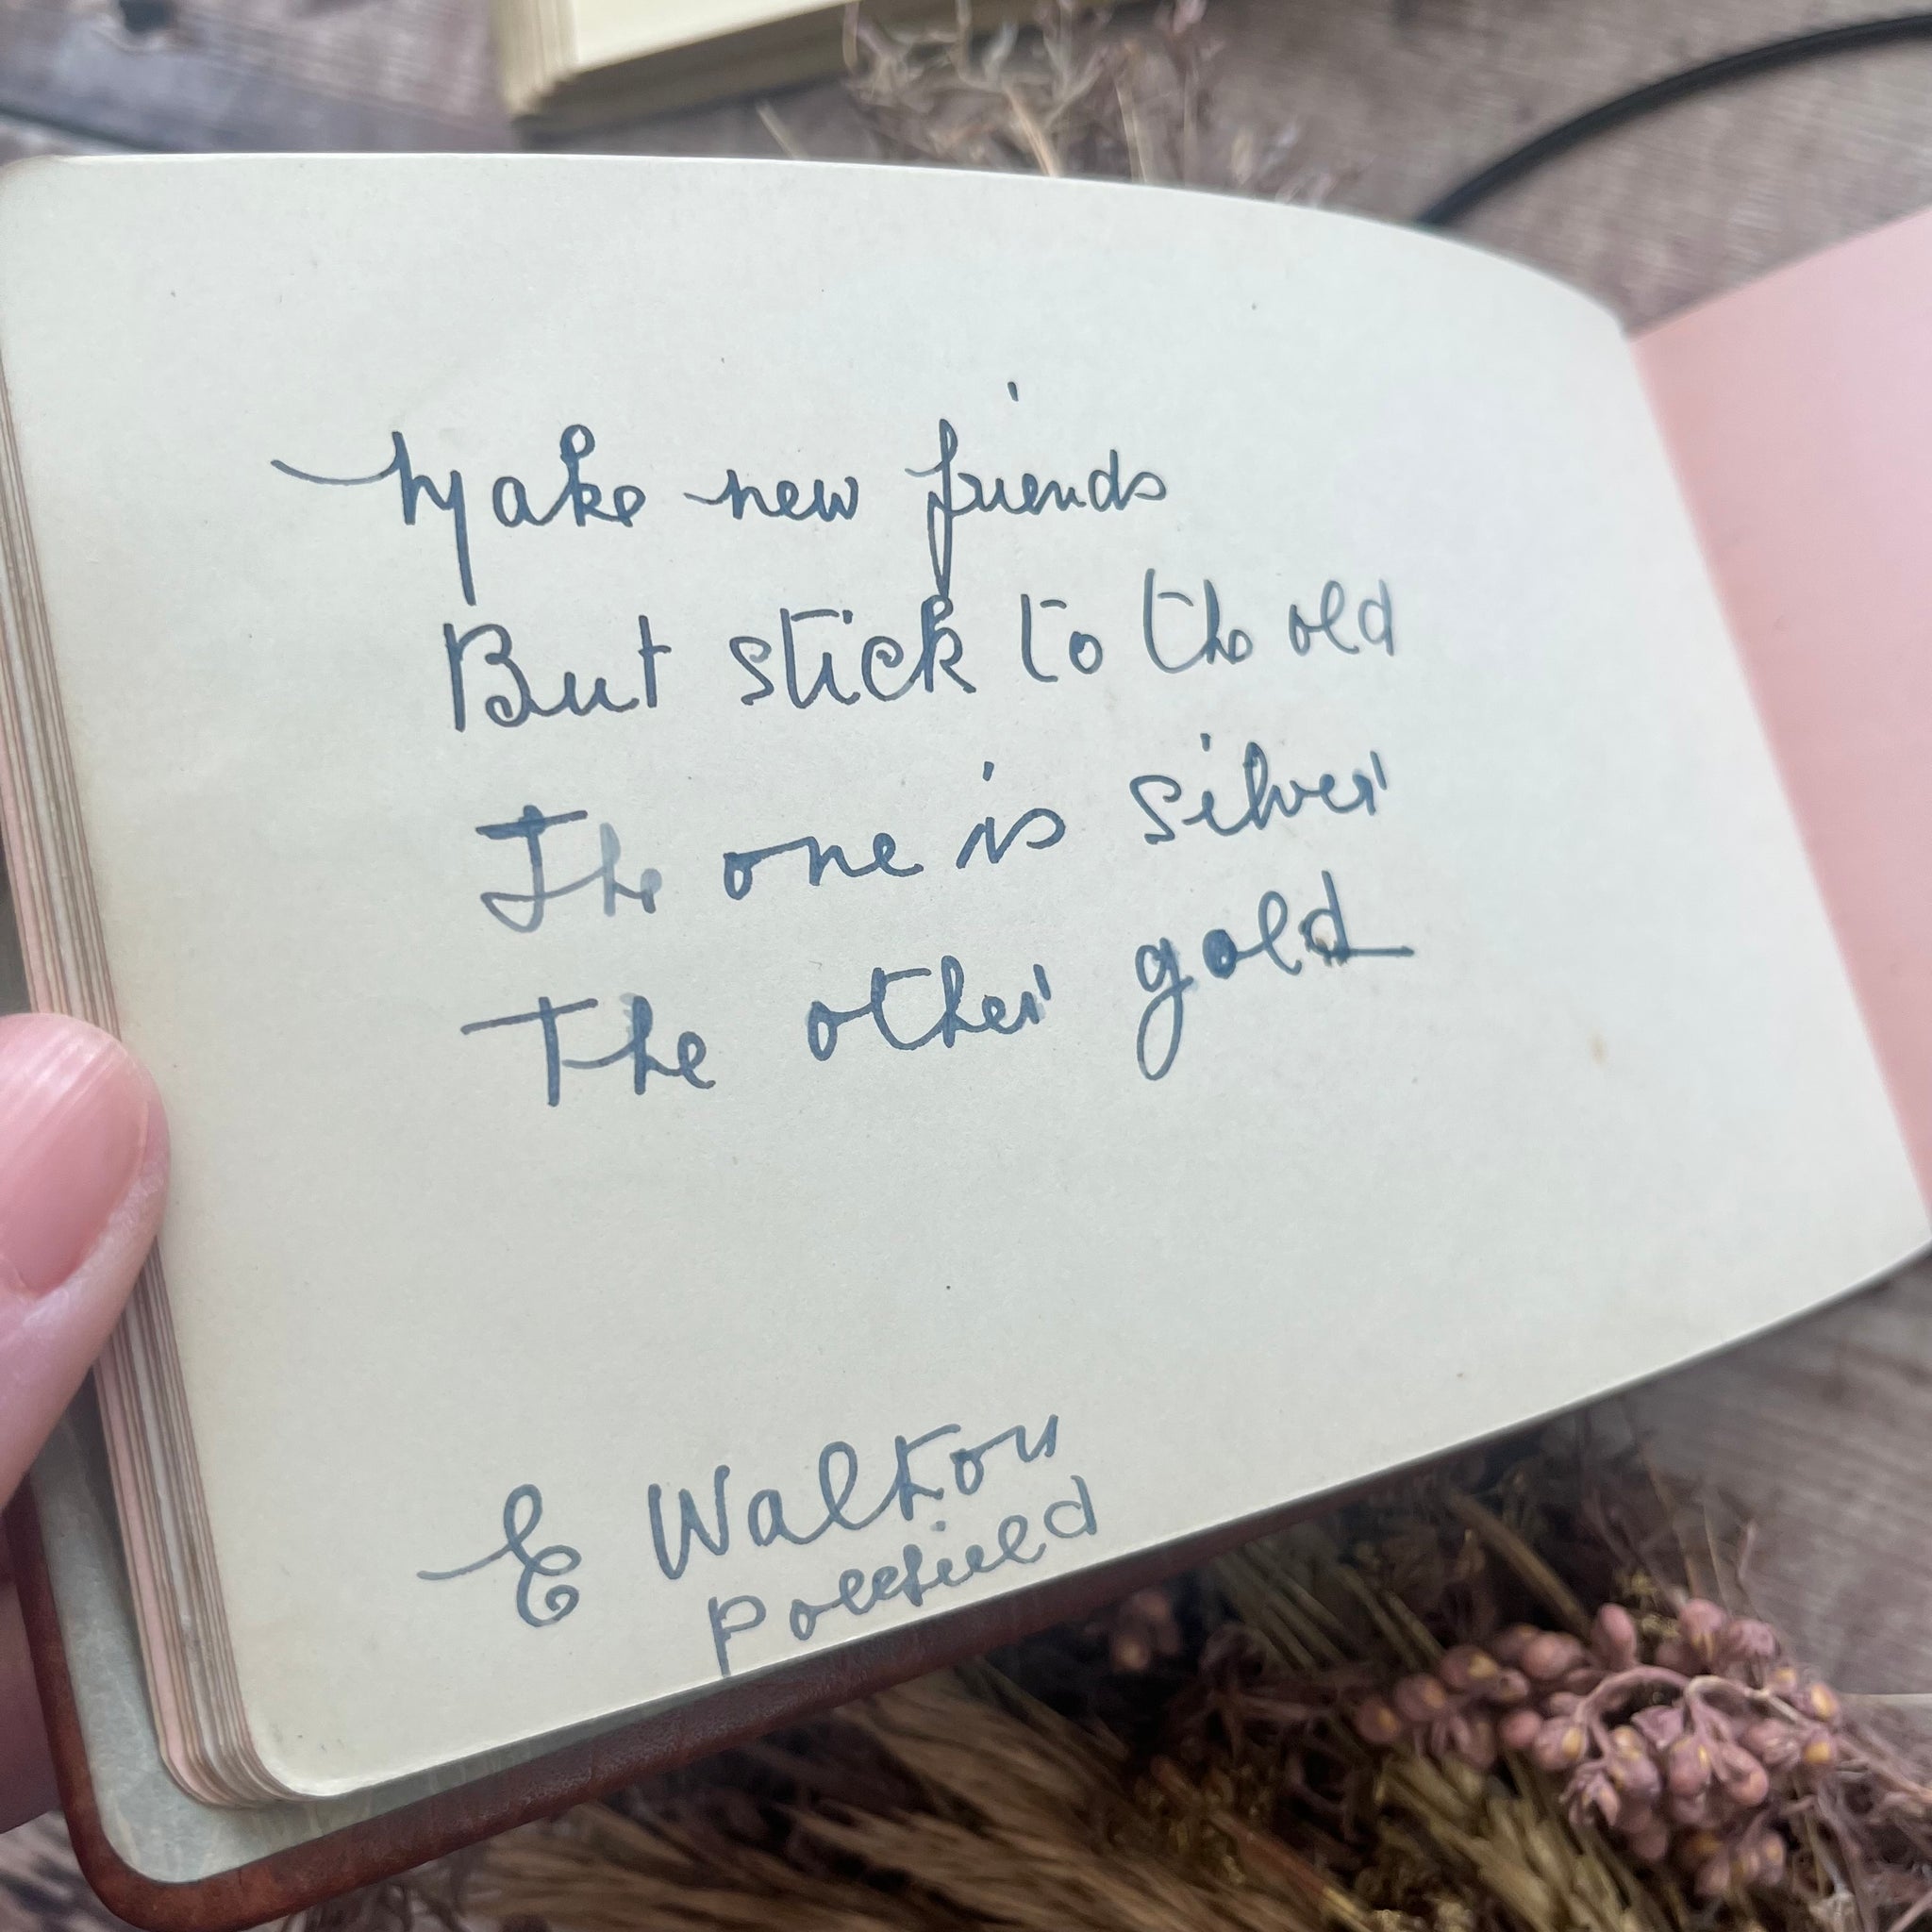 Make new friends
But stick to the old
The one is silver
The other gold
E Walton